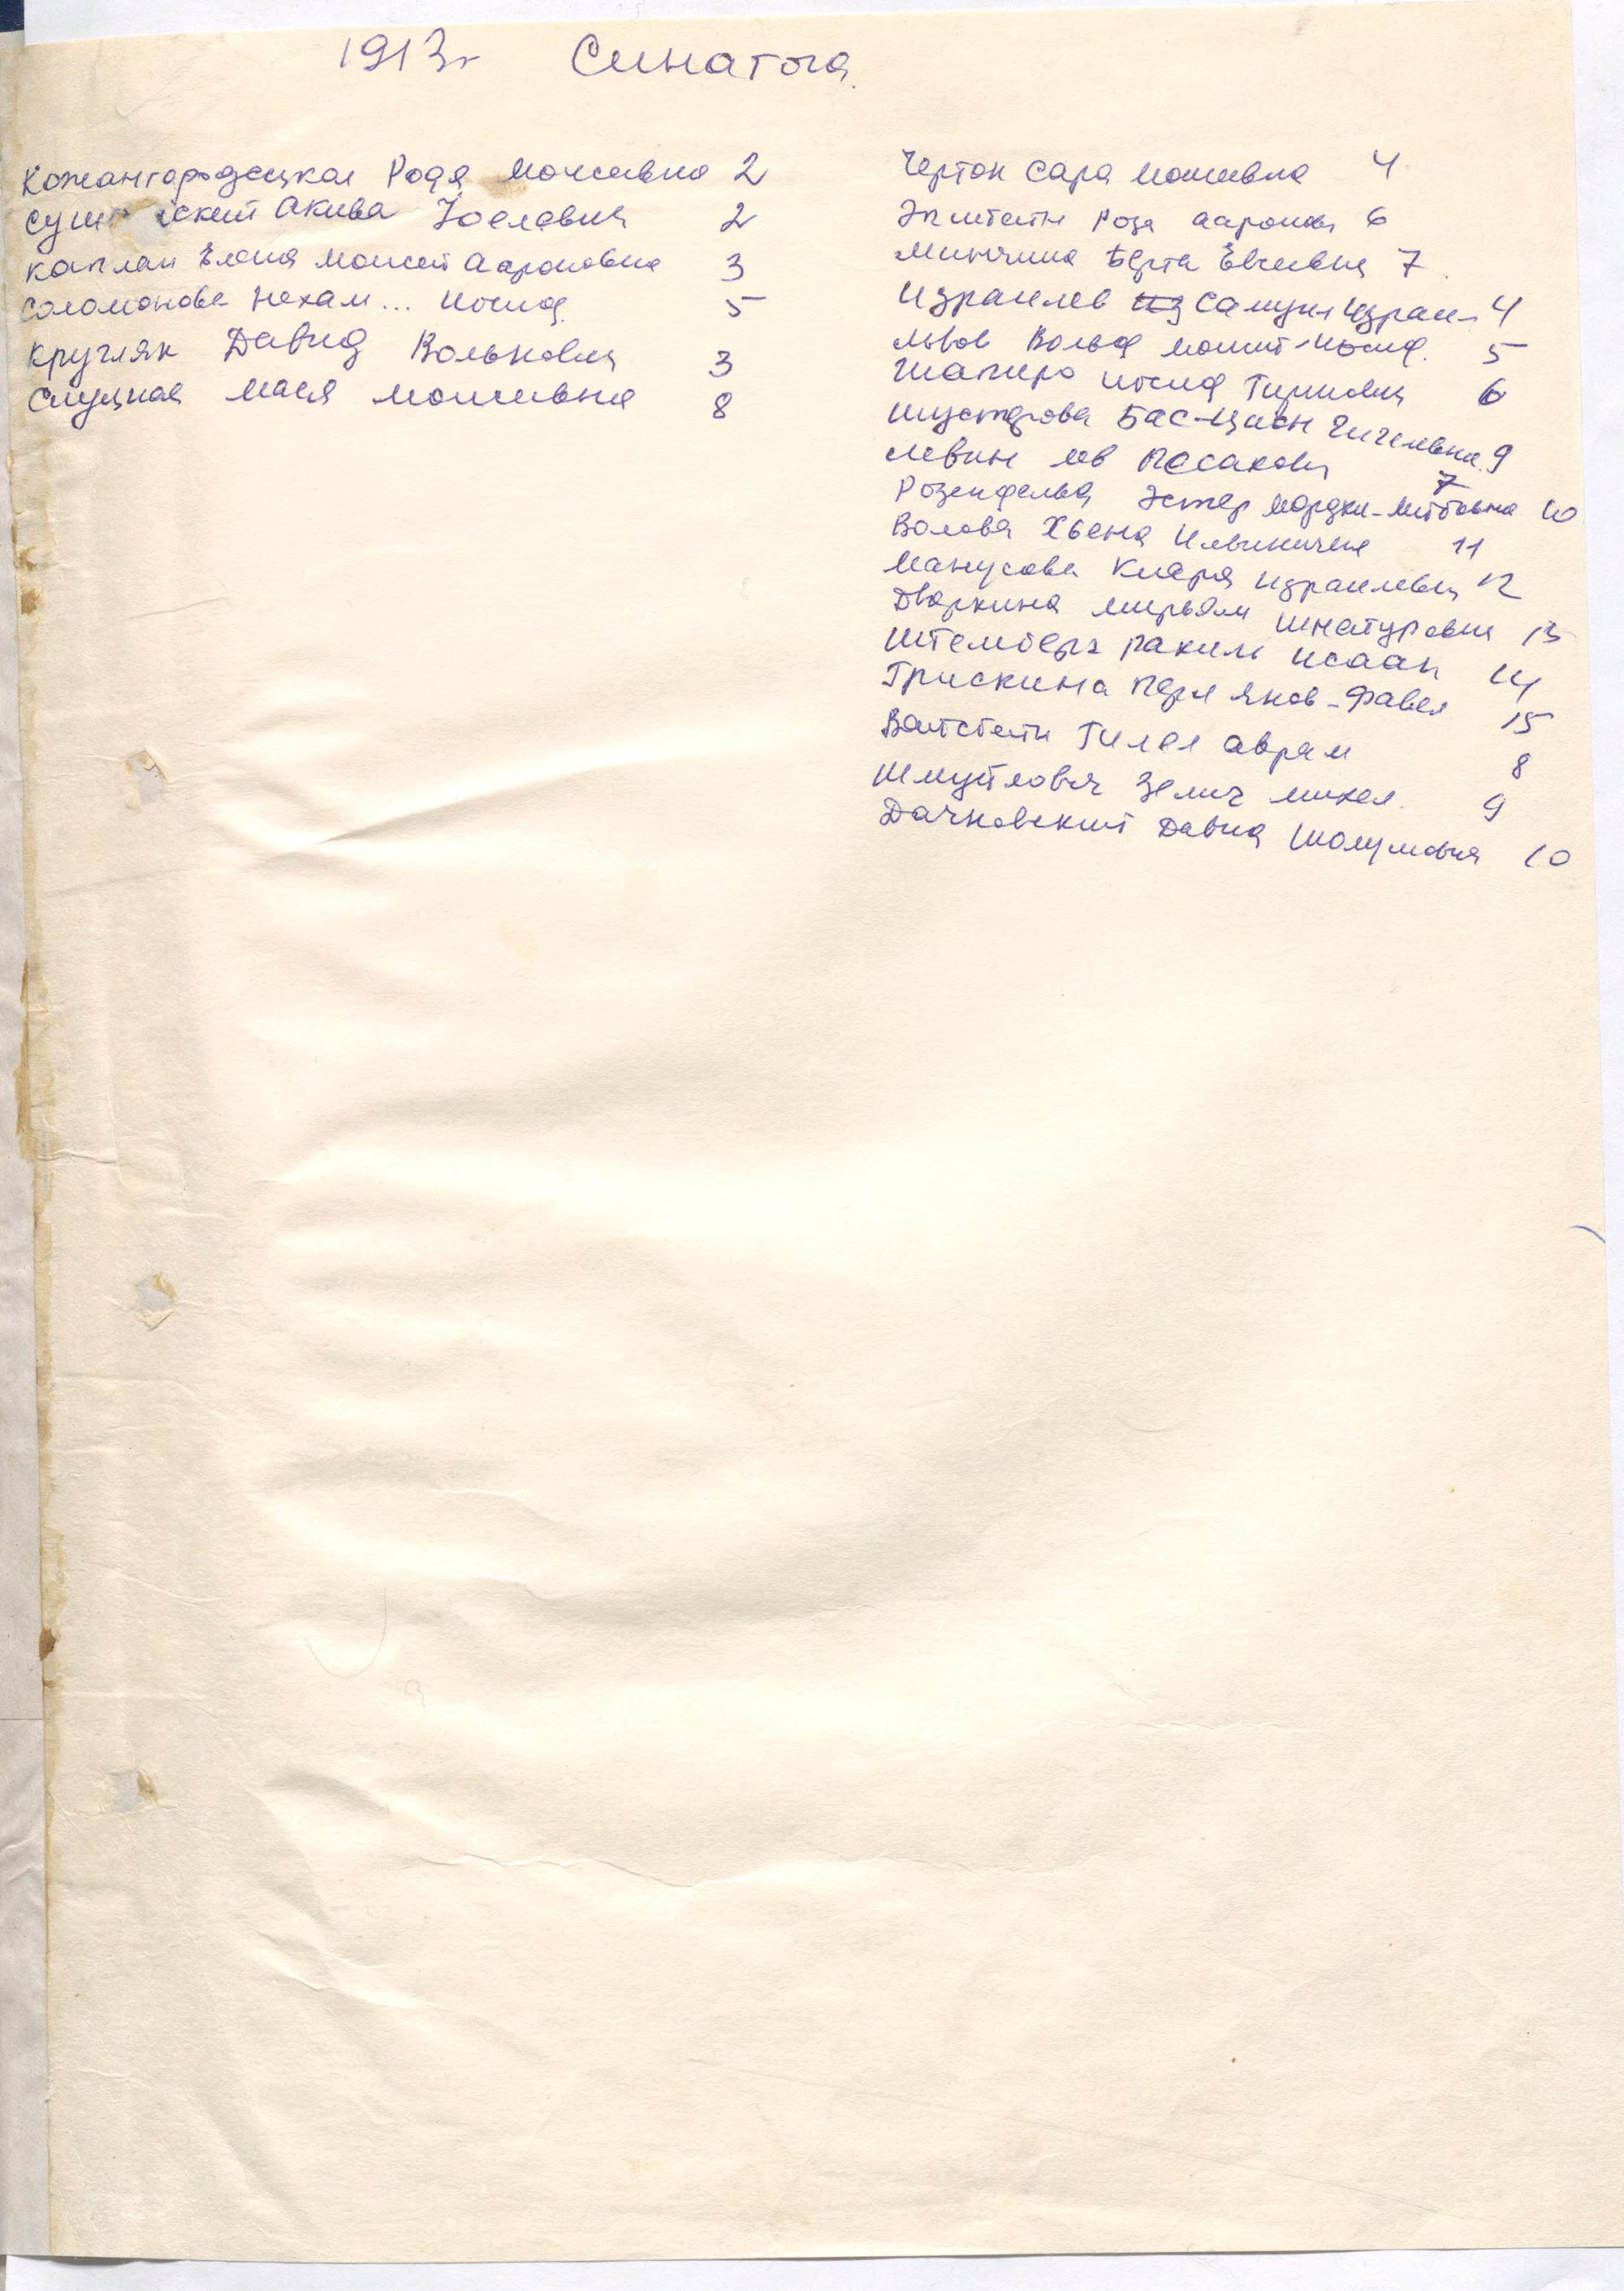 1913г Синагога
Кожангородецкая Рода Мовшевна 2
Суш ский Акива Иоелевич 2
Каплан Елена Моисей Аароновна 3
Соломонова Нехам... Иосиф. 5
Кругляк Давид Волькович 3
Слуцкая Мася Мовшевна 8
Черток Сара Мовшевна 4
Эпштейн Роза Аароновн 6
Минчина Берта Евсеевна 7
Израилев Самуил Израил 4
Львов Вольф Мовшит-Иосиф. 5
Шапиро Иосиф Гиршович 6
Шустерова Бас-Цион Гилелевна 9
Левин Лев Песахович 7
Розенфельд Эстер Мордхи-Лейбовна 10
Волова Хьена Ильинична 11
Манусова Клара Израилевн 12
Дворкина Мирьям Шнеуровна 13
Штемберг Рахиль Исаак 14
Грискина Перл Янов-Фавел 15
Вайстейн Гилел Аврам 8
Шмуйлович Зелиг Михел. 9
Дачковский Давид Шолумович 10